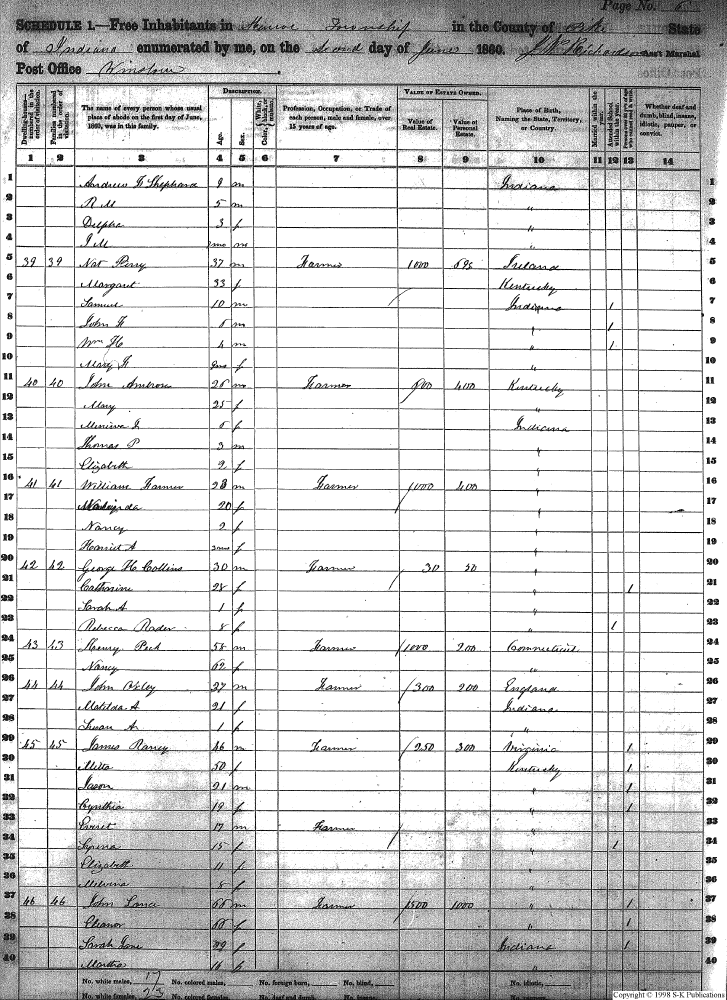 Page No. 6
SCHEDULE 1.—Free Inhabitants in Monroe Township in the County of Pike State
of Indiana enumerated by me, on the second day of June 1860. Ass't Marshal
Post Office Winslow
Dwelling-houses—numbered in the order of visitation.
Families numbered in the order of visitation.
The name of every person whose usual place of abode on the first day of June, 1860, was in this family.
DESCRIPTION.
Age.
Sex.
Profession, Occupation, or Trade of each person, male and female, over 15 years of age.
VALUE OF ESTATE OWNED.
Value of Real Estate.
Value of Personal Estate.
Place of Birth, Naming the State, Territory, or Country.
Married within the year.
Attended School within the year.
Whether deaf and dumb, blind, insane, idiotic, pauper, or convict.
1 2 3 4 5 6 7 8 9 10 11 12 13 14
1 Andrew F Shephard 9 m Indiana 1
2 R M 5 m " 2
3 Delpha 3 f " 3
4 m " 4
5 39 39 Nat Perry 37 m Farmer 1000 695 Ireland 5
6 Margaret 33 f Kentucky 6
7 Samuel 10 m Indiana 1 7
8 John F m " 1 8
9 Wm H m " 1 9
10 Mary F f " 10
11 40 40 John Ambrose 26 m Farmer 800 400 Kentucky 11
12 Mary 25 f " 12
13 Minerva J f Indiana 13
14 Thomas P 3 m " 14
15 Elizabeth 2 f " 15
16 41 41 William Farmer 28 m Farmer 1000 400 " 16
17 20 f " 17
18 Nancy 2 f " 18
19 Harriet A f " 19
20 42 42 George H Collins 30 m Farmer 30 50 " 20
21 Catharine 28 f " 1 21
22 Sarah A 1 f " 22
23 Rebecca Rader 8 f " 1 23
24 43 43 Henry Peck 58 m Farmer 1000 200 Connecticut 24
25 Nancy 62 f " 25
26 44 44 John 27 m Farmer 300 200 England 26
27 Matilda A 21 f Indiana 27
28 Susan A 1 f " 28
29 45 45 James Raney 46 m Farmer 250 300 Virginia 1 29
30 50 f Kentucky 1 30
31 Jason 21 m " 1 31
32 Cynthia 19 f " 1 32
33 17 m Farmer " 33
34 15 f " 1 34
35 Elizabeth 11 f " 35
36 Melvina 8 f " 36
37 46 46 John 66 m Farmer 1500 1000 " 1 37
38 Eleanor 66 f " 1 38
39 Sarah Jane f Indiana 1 39
40 Martha 16 f " 40
No. white males, 17 No. colored males, No. foreign born, No. blind, No. idiotic,
No. white females, 23 No. colored females, No. deaf and dumb, No. insane,
Copyright © 1998 S-K Publications